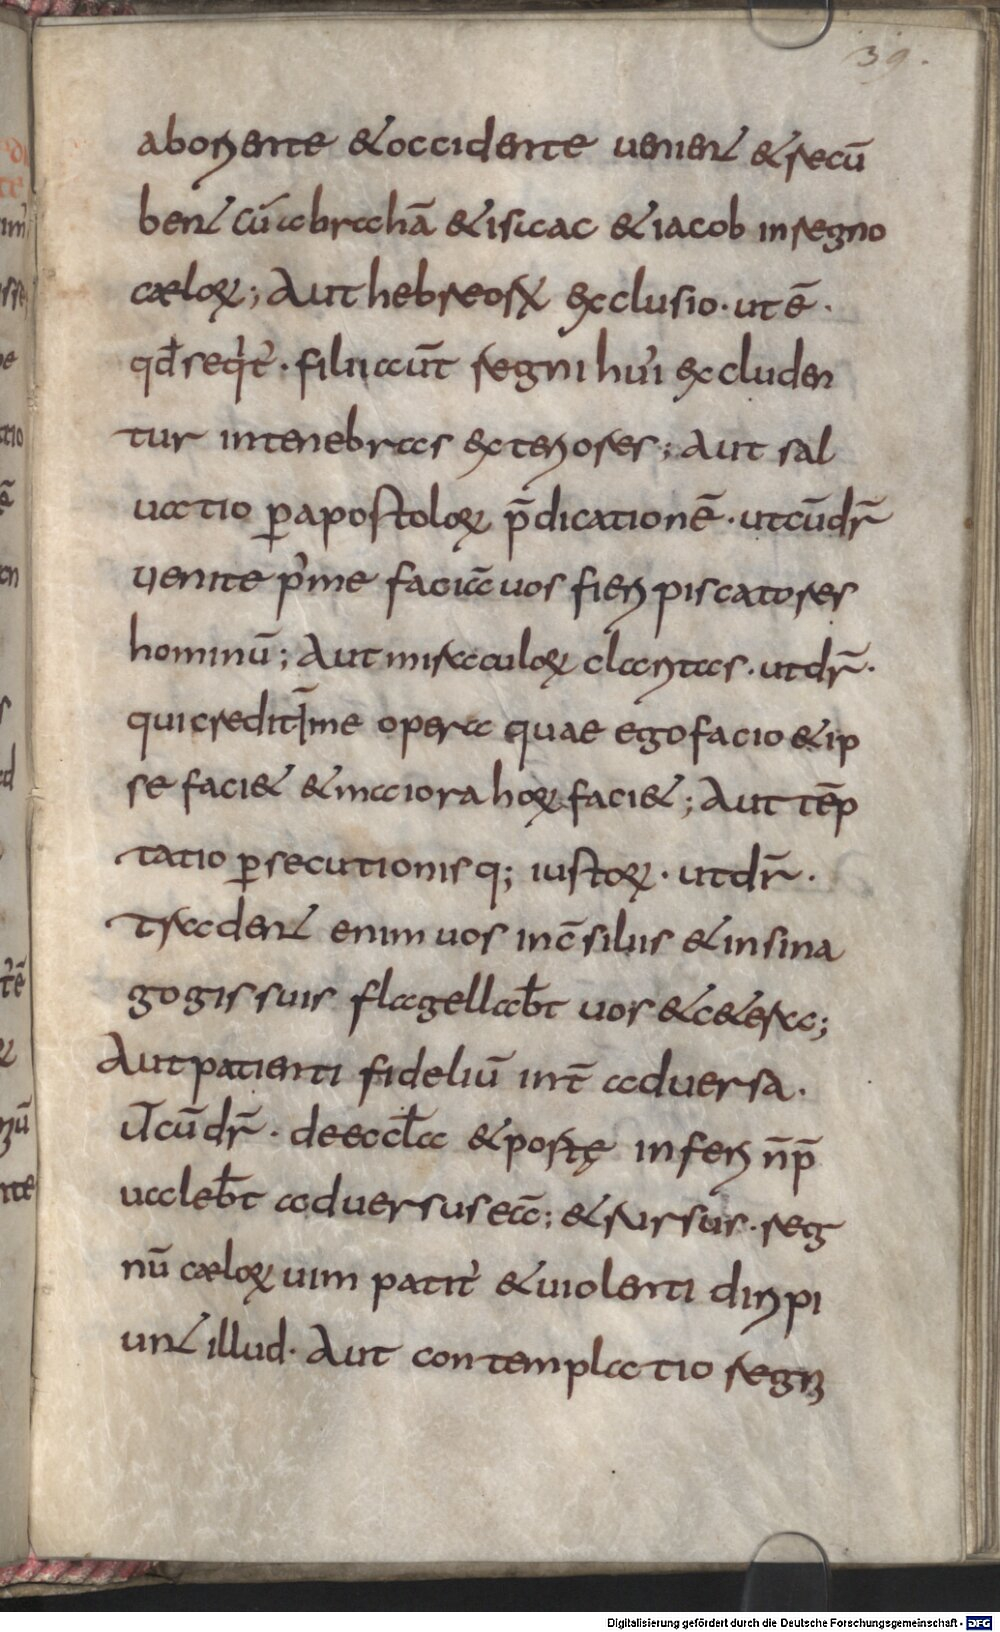 39.
ab oriente & occidente uenient & recū
bent cū abrachā & isicac & iacob in regno
cælorꝝ; Aut hebreorꝝ exclusio · ut ē ·
qđ seqt̄ · filii aūt regni hui' excluden
tur in tenebras exteriores; Aut sal
uatio ꝑ apostolorꝝ p̄dicationē · ut cū dr̄
uenite p' me faciā uos fieri piscatores
hominū; Aut miraculorꝝ claritas · ut dr̄ ·
qui credit ī me opera quae ego facio & ip
se faci& & maciora horꝝ faci&; Aut tēp
tatio ꝑsecutionisq; iustorꝝ · ut dr̄ ·
tradent enim uos in c̄siliis & in sina
gogis suis flagellab̄t uos & c&era;
Aut patienti fidelium int̄ aduersa ·
ut cū dr̄ · de eccl̄a & portę inferi n̄ p̄
ualeb̄t aduersus eā; & rursus · reg
nū cælorꝝ uim patit' & uiolenti diripi
unt illud · Aut contemplatio regni
Digitalisierung gefördert durch die Deutsche Forschungsgemeinschaft - DFG